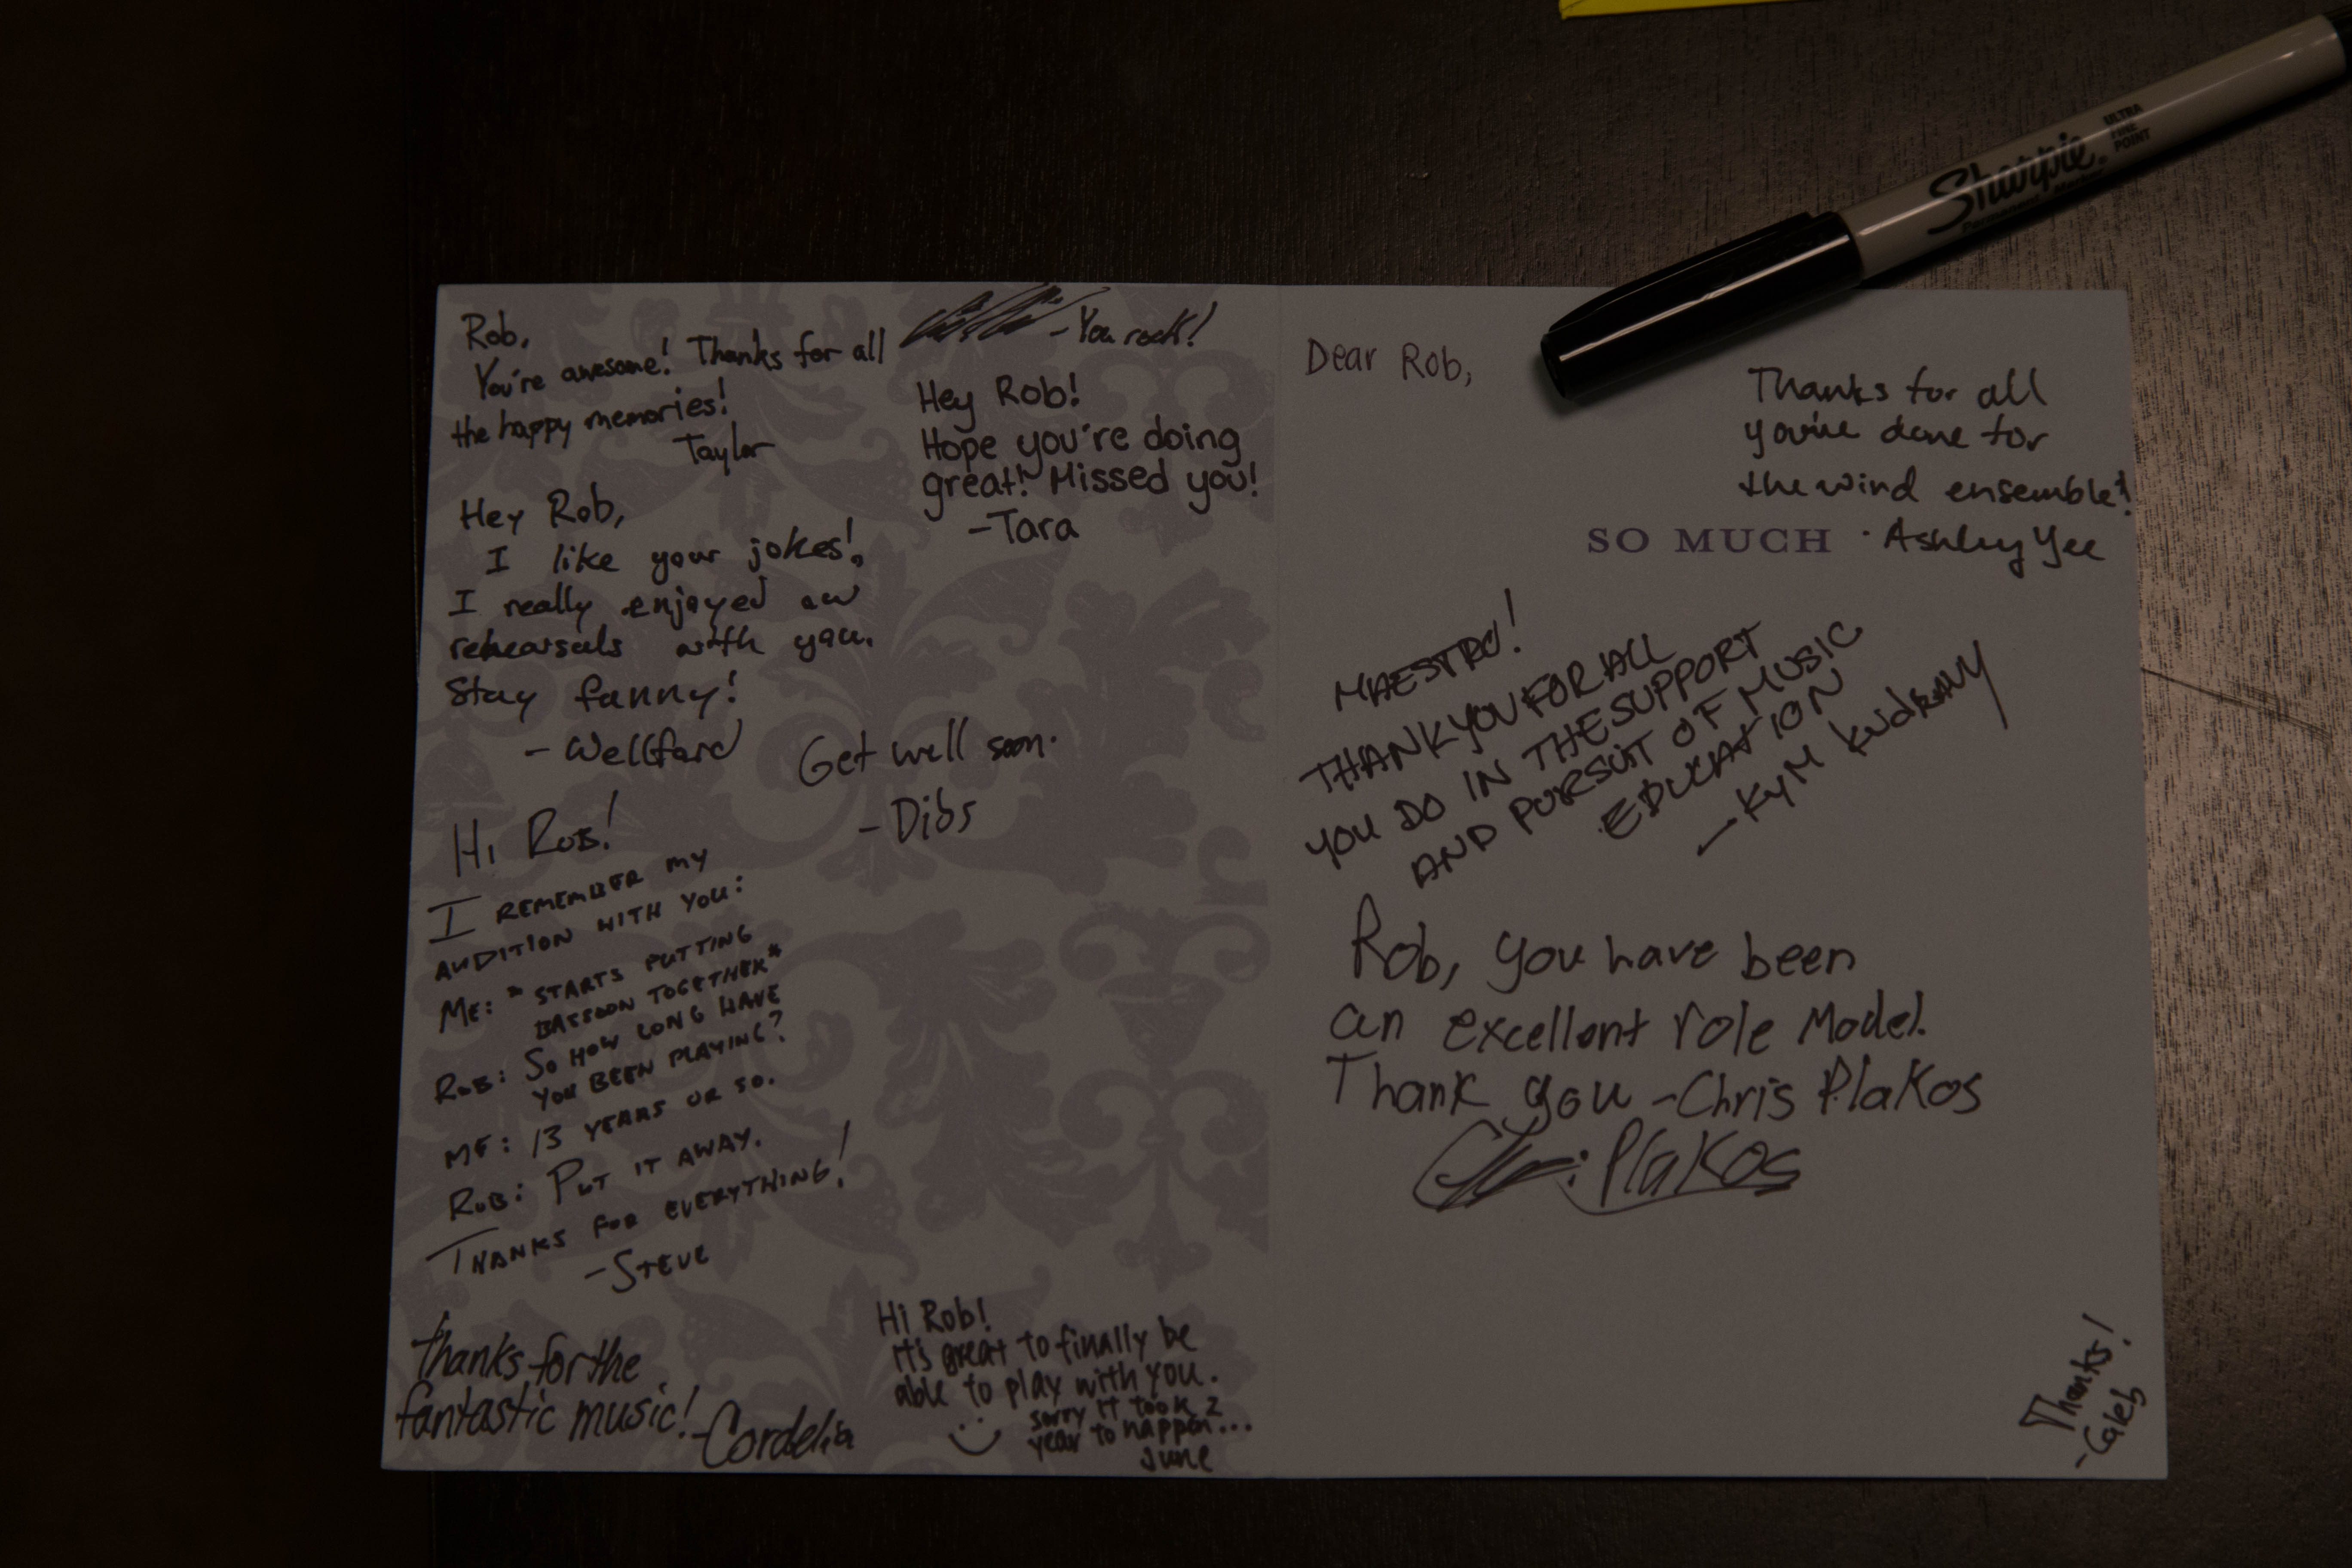 Rob,
You're awesome! Thanks for all
the happy memories!
Taylor
- You rock!
Hey Rob!
Hope you're doing
great! Missed you!
-Tara
Hey Rob,
I like your jokes!
I really enjoyed our
rehearsals with you.
Stay funny!
- Wellford
Get well soon.
- Dibs
Hi Rob!
I REMEMBER MY
AUDITION WITH YOU:
ME: *STARTS PUTTING
BASSOON TOGETHER*
ROB: SO HOW LONG HAVE
YOU BEEN PLAYING?
ME: 13 YEARS OR SO.
ROB: PUT IT AWAY.
THANKS FOR EVERYTHING!
- STEVE
Thanks for the
fantastic music!
-Cordelia
Hi Rob!
It's great to finally be
able to play with you.
sorry it took 2
year to happen...
June
Dear Rob,
Thanks for all
you've done for
the wind ensemble!
SO MUCH
· Ashley Yee
MAESTRO!
THANK YOU FOR ALL
YOU DO IN THE SUPPORT
AND PURSUIT OF MUSIC
EDUCATION
- KYM KUDRAVY
Rob, you have been
an excellent role Model.
Thank you - Chris Plakos
Plakos
Thanks!
-Caleb
Sharpie.
Permanent Marker
ULTRA
FINE
POINT